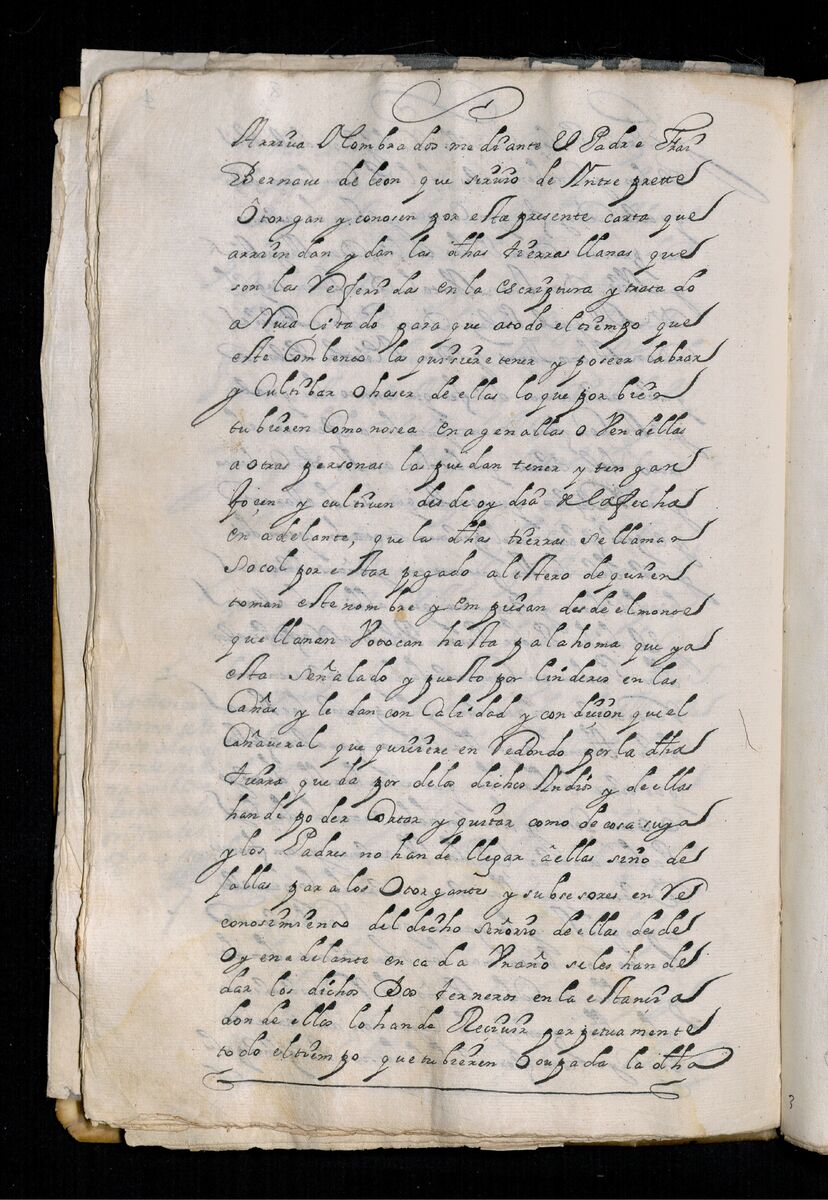 Arriva Nombrados mediante El Padre Frai
Bernave de leon que sirvio de Yntreprette
Otorgan y conosen por esta presente carta que
arriendan y dan las dhas tierras llanas que
son las Referidas en la escriptura y tratado
a Rriva Citado para que atodo el tiempo que
este Combento las quisiere tener y poseer labrar
y Cultibar o haser de ellas lo que por bien
tubieren Como no sea enagenallas o Vendellas
a otras personas las puedan tener y tengan
gosen y cultiven desde oy dia de la fecha
en adelante, que la dhas tierras se llaman
Socol por estar pegado al estero de quien
toman este nombre y empiesan desde el monte
que llaman Potocan hasta palahoma que ya
esta señalado y puesto por linderos en las
Cañas y le dan con Calidad y condision que el
Cañaveral que quisiere en Redondo por la dha
tierra queda por de los dichos Yndios y de ellas
han de poder Cortar y quitar como de cosa suya
y los Padres no han de llegar â ellas sino de
jallas para los Otorgantes y subsesores en Re
conosimiento del dicho señorio de ellas desde
oy en adelante en cada Vn año se les han de
dar los dichos Dos terneros en la estansia
donde ellos lo han de Recivir perpetuamente
todo el tiempo que tubieren Ocupada la dha
3